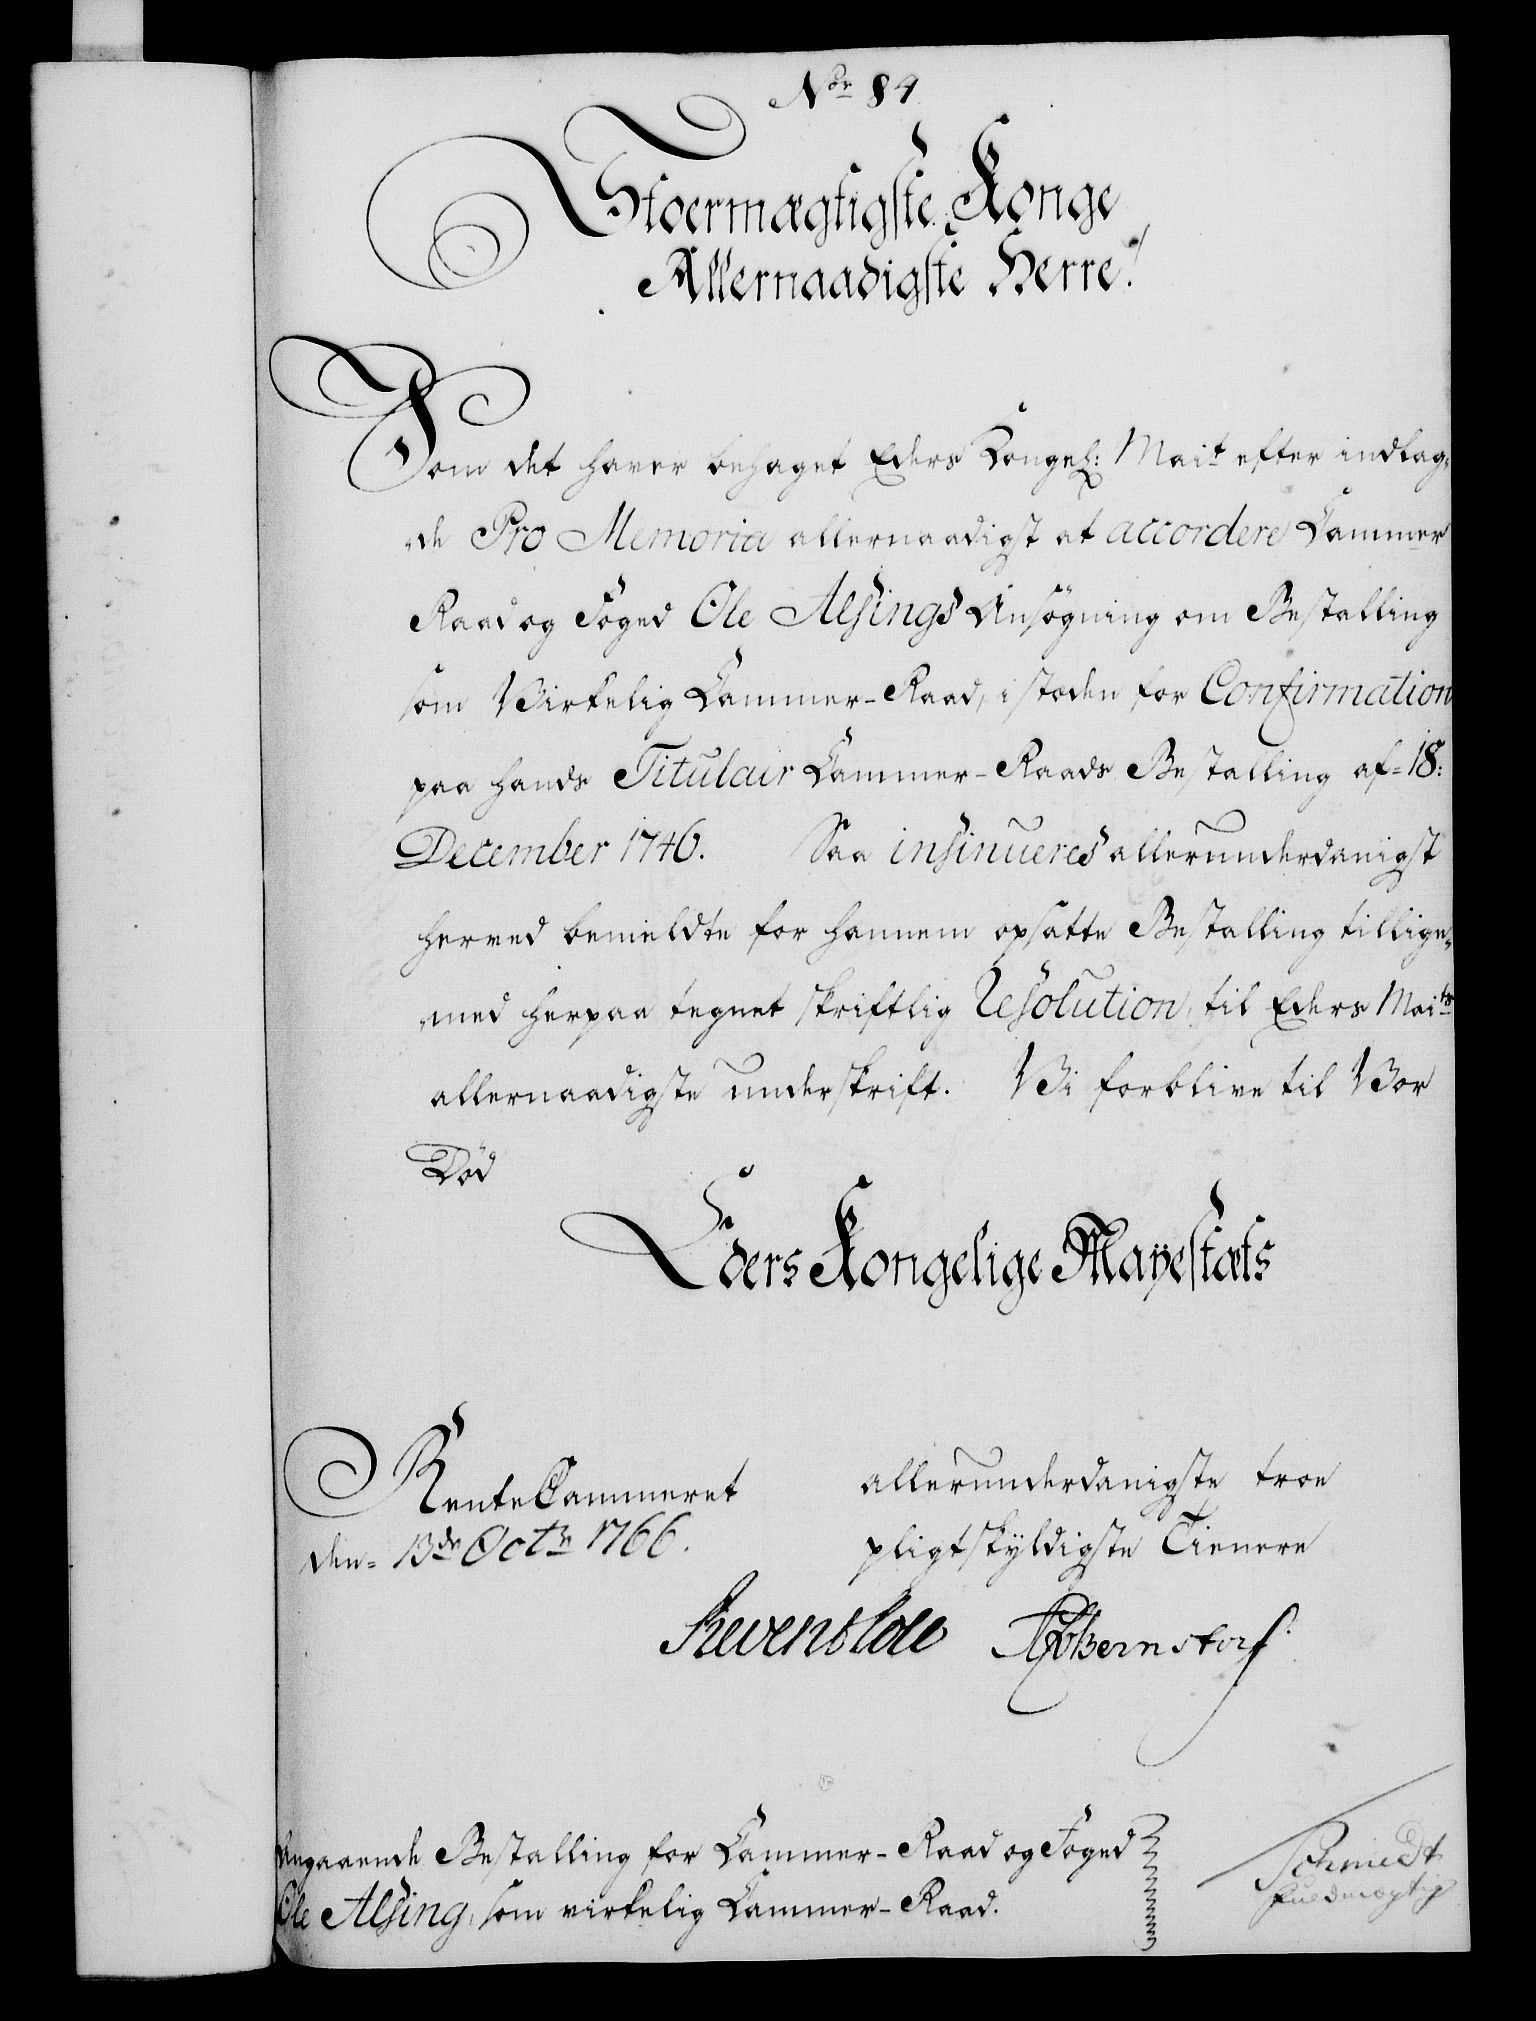 No 84
Stoermægtigste Konge
Allernaadigste Herre!
Som det haver behaget Eders Kongel: Mait efter indlag-
de Pro Memoria allernaadigst at accordere Cammer
Raad og Foged Ole Alsings Ansøgning om Bestalling
som Virkelig Cammer-Raad, i stæden for Confirmation
paa hands Titulair Cammer-Raads Bestalling af 18:
December 1746. Saa insinueres allerunderdanigst
herved bemeldte for hannem opsatte Bestalling tillige-
med herpaa tegnet skriftlig Resolution, til Eders Maits
allernaadigste underskrift. Vi forblive til Vor
Død
Eders Kongelige Mayestæts
RenteCammeret allerunderdanigste troe
den 13de Octr 1766. pligtskyldigste Tienere
Bernstorf
Angaaende Bestalling for Cammer-Raad og Foged
Ole Alsing, som virkelig Cammer-Raad.
Schmidt
Fuldmægtig